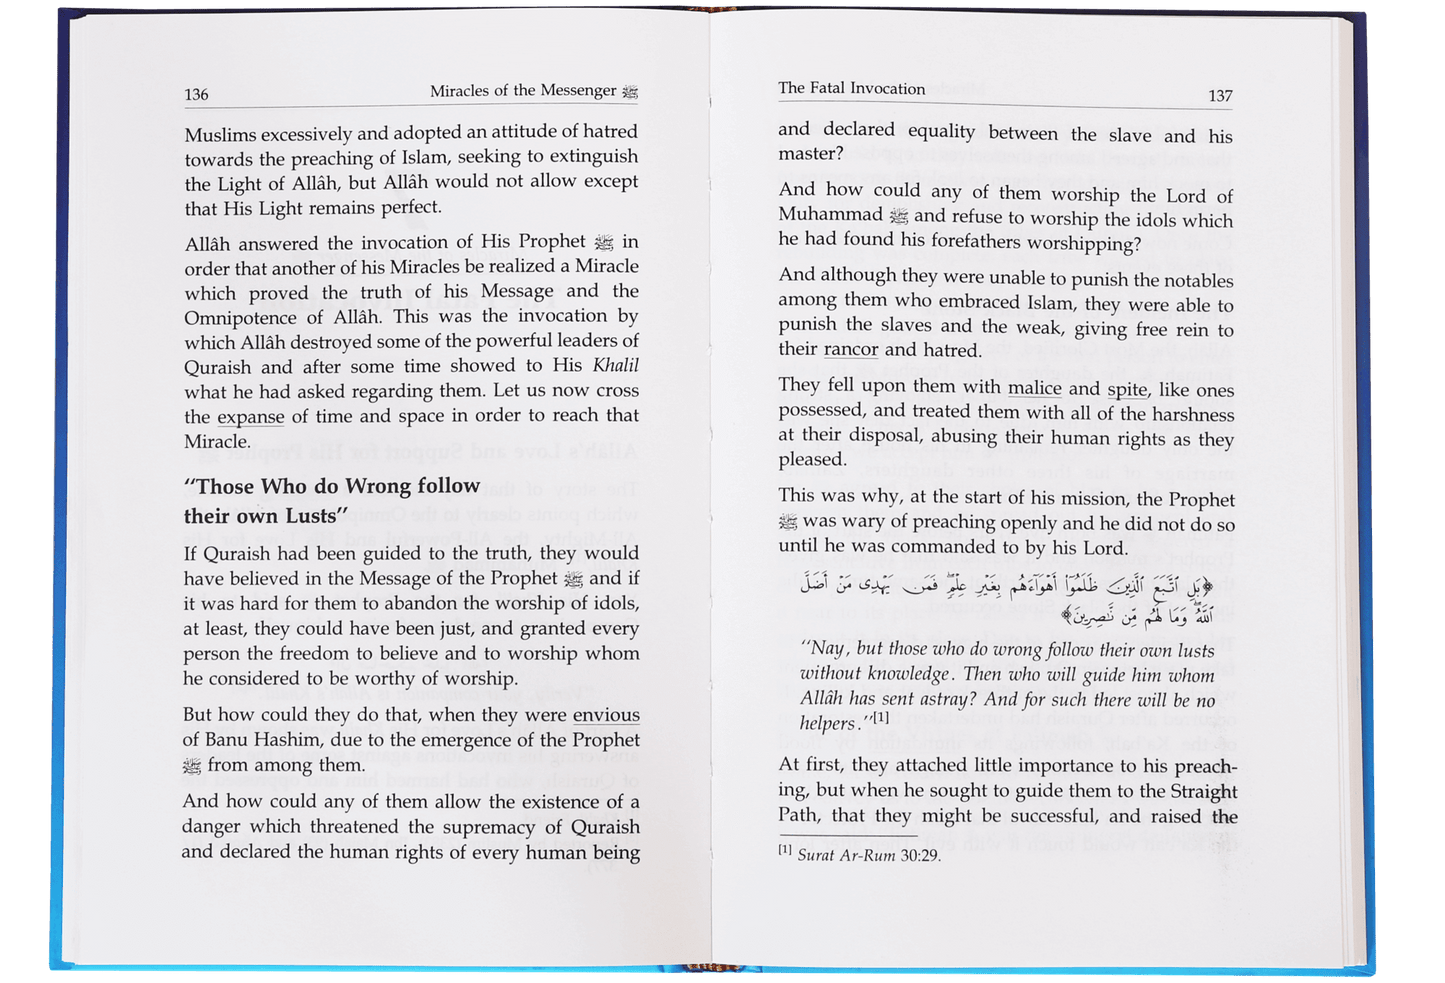 136 Miracles of the Messenger ﷺ
Muslims excessively and adopted an attitude of hatred
towards the preaching of Islam, seeking to extinguish
the Light of Allâh, but Allâh would not allow except
that His Light remains perfect.
Allâh answered the invocation of His Prophet ﷺ in
order that another of his Miracles be realized a Miracle
which proved the truth of his Message and the
Omnipotence of Allâh. This was the invocation by
which Allâh destroyed some of the powerful leaders of
Quraish and after some time showed to His Khalil
what he had asked regarding them. Let us now cross
the expanse of time and space in order to reach that
Miracle.
“Those Who do Wrong follow
their own Lusts”
If Quraish had been guided to the truth, they would
have believed in the Message of the Prophet ﷺ and if
it was hard for them to abandon the worship of idols,
at least, they could have been just, and granted every
person the freedom to believe and to worship whom
he considered to be worthy of worship.
But how could they do that, when they were envious
of Banu Hashim, due to the emergence of the Prophet
ﷺ from among them.
And how could any of them allow the existence of a
danger which threatened the supremacy of Quraish
and declared the human rights of every human being
The Fatal Invocation 137
and declared equality between the slave and his
master?
And how could any of them worship the Lord of
Muhammad ﷺ and refuse to worship the idols which
he had found his forefathers worshipping?
And although they were unable to punish the notables
among them who embraced Islam, they were able to
punish the slaves and the weak, giving free rein to
their rancor and hatred.
They fell upon them with malice and spite, like ones
possessed, and treated them with all of the harshness
at their disposal, abusing their human rights as they
pleased.
This was why, at the start of his mission, the Prophet
ﷺ was wary of preaching openly and he did not do so
until he was commanded to by his Lord.
﴿بَلِ ٱتَّبَعَ ٱلَّذِينَ ظَلَمُوٓا۟ أَهْوَآءَهُم بِغَيْرِ عِلْمٍ ۖ فَمَن يَهْدِى مَنْ أَضَلَّ
ٱللَّهُ ۖ وَمَا لَهُم مِّن نَّـٰصِرِينَ﴾
“Nay, but those who do wrong follow their own lusts
without knowledge. Then who will guide him whom
Allâh has sent astray? And for such there will be no
helpers.”[1]
At first, they attached little importance to his preach-
ing, but when he sought to guide them to the Straight
Path, that they might be successful, and raised the
[1] Surat Ar-Rum 30:29.